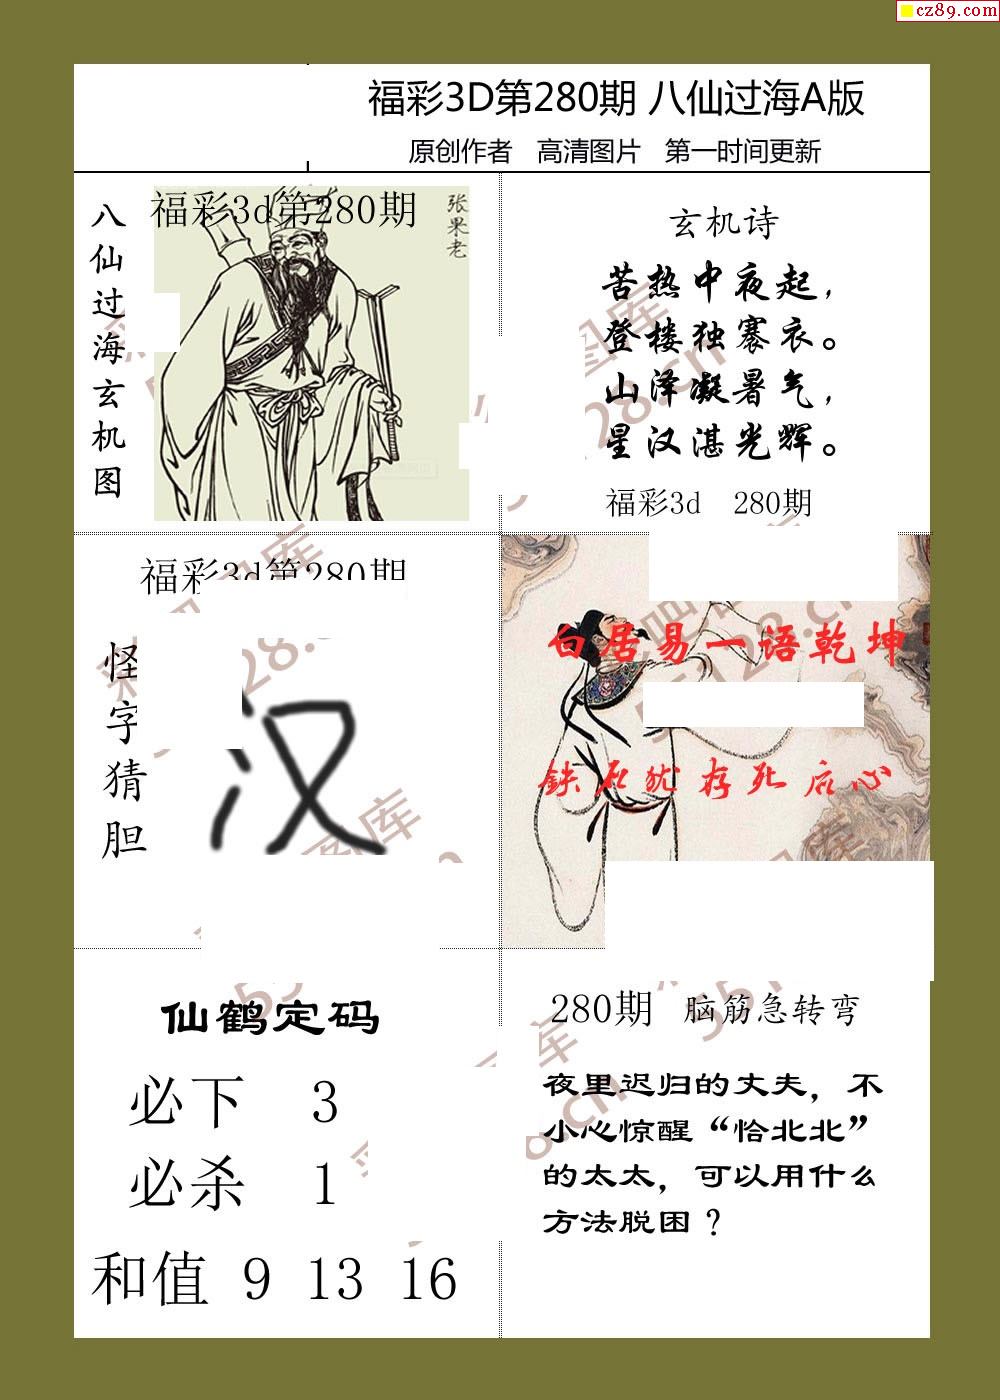 cz89.com
福彩3D第280期 八仙过海A版
原创作者 高清图片 第一时间更新
八仙过海玄机图
福彩3d第280期
张果老
玄机诗
苦热中夜起，
登楼独褰衣。
山泽凝暑气，
星汉湛光辉。
福彩3d 280期
福彩3d第280期
怪字猜胆
汉
白居易一语乾坤
鉄石犹存死后心
仙鹤定码
必下 3
必杀 1
和值 9 13 16
280期 脑筋急转弯
夜里迟归的丈夫，不
小心惊醒“恰北北”
的太太，可以用什么
方法脱困？